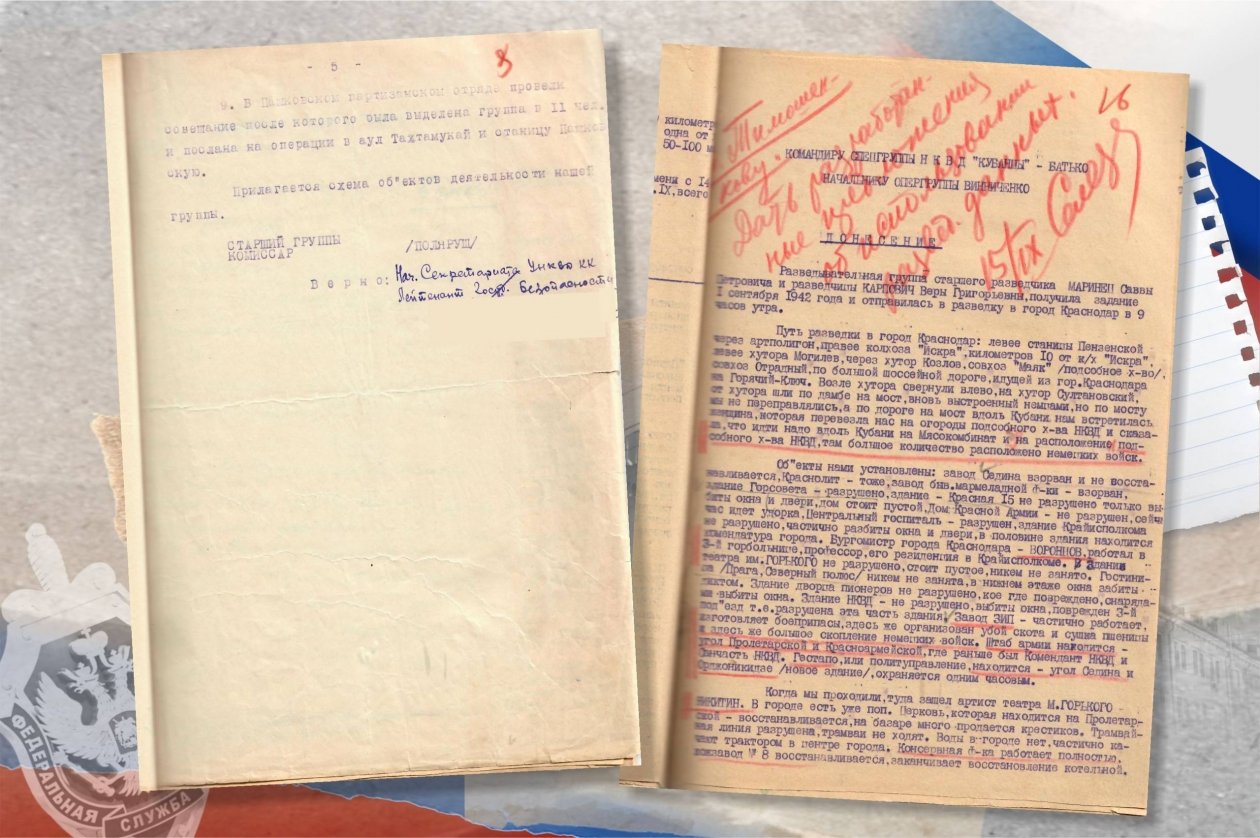 - 5 -
8
9. В Пашковском партизанском отряде провели
совещание после которого была выделена группа в 11 чел.
и послана на операции в аул Тахтамукай и станицу Пашков
скую.
Прилагается схема об"ектов деятельности нашей
группы.
СТАРШИЙ ГРУППЫ
КОМИССАР /ПОЛЯРУШ/
Верно: Нач. Секретариата УНКВД КК
Лейтенант Госуд. Безопасности
километр
одна от
50-100 м
мени с 14
.IX, всего
16
Тимошен-
кову.
Дать разработан-
ные предложения
об использовании
развед. данных.
15/IX
КОМАНДИРУ СПЕЦГРУППЫ Н К В Д "КУБАНЦЫ" - БАТЬКО
НАЧАЛЬНИКУ ОПЕРГРУППЫ ВИННИЧЕНКО
Д О Н Е С Е Н И Е.
Разведывательная группа старшего разведчика МАРИНЕН Саввы
Петровича и разведчицы КАРПОВИЧ Веры Григорьевны, получила задание
I сентября 1942 года и отправилась в разведку в город Краснодар в 9
часов утра.
Путь разведки в город Краснодар: левее станицы Пензенской -
через артполигон, правее колхоза "Искра", километров IO от к/х "Искра",
левее хутора Могилев, через хутор Козлов, совхоз "Маяк" /подсобное х-во/,
совхоз Отрадный, по большой шоссейной дороге, идущей из гор. Краснодара
на Горячий-Ключ. Возле хутора свернули влево, на хутор Султановский,
от хутора шли по дамбе на мост, вновь выстроенный немцами, но по мосту
мы не переправлялись, а по дороге на мост вдоль Кубани нам встретилась
женщина, которая перевезла нас на огороды подсобного х-ва НКВД и сказа-
ла, что идти надо вдоль Кубани на Мясокомбинат и на расположение под-
собного х-ва НКВД, там большое количество расположено немецких войск.
Об"екты нами установлены: завод Седина взорван и не восста-
навливается, Краснолит - тоже, завод быв. мармеладной ф-ки - взорван,
здание Горсовета - разрушено, здание - Красная I5 не разрушено только вы-
биты окна и двери, дом стоит пустой, Дом Красной Армии - не разрушен, сейч
час идет уборка, Центральный госпиталь - разрушен, здание Крайисполкома
не разрушено, частично разбиты окна и двери, в половине здания находится
комендатура города. Бургомистр города Краснодара - ВОРОНЦОВ, работал в
3-й горбольнице, профессор, его резиденция в Крайисполкоме. В здании
театра им. ГОРЬКОГО не разрушено, стоит пустое, никем не занято. Гостини-
ца /Прага, Северный полюс/ никем не занята, в нижнем этаже окна забиты
диктом. Здание дворца пионеров не разрушено, кое где повреждено, снаряда-
ми выбиты окна. Здание НКВД - не разрушено, выбиты окна, поврежден 3-й
под"езд т.е. разрушена эта часть здания. Завод ЗИП - частично работает,
изготовляет боеприпасы, здесь же организован убой скота и сушка пшеницы
и здесь же большое скопление немецких войск. Штаб армии находится -
угол Пролетарской и Красноармейской, где раньше был Комендант НКВД и
Санчасть НКВД. Гестапо, или политуправление, находится - угол Седина и
Орджоникидзе /новое здание/, охраняется одним часовым.
Когда мы проходили, туда зашел артист театра М. ГОРЬКОГО -
НИКИТИН. В городе есть уже поп. Церковь, которая находится на Пролетар-
ской - восстанавливается, на базаре много продается крестиков. Трамвай-
ная линия разрушена, трамваи не ходят. Воды в городе нет, частично ка-
чают трактором в центре города. Консервная ф-ка работает полностью.
Кожзавод № 8 восстанавливается, заканчивает восстановление котельной.
ФЕДЕРАЛЬНАЯ
СЛУЖБА